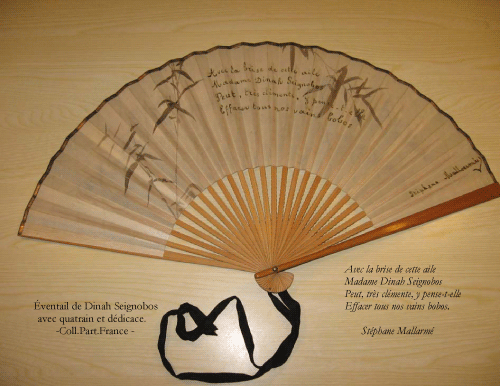 Avec la brise de cette aile
Madame Dinah Seignobos
Peut, très clémente, y pense-t-elle
Effacer tous nos vains bobos
Stéphane Mallarmé
Éventail de Dinah Seignobos
avec quatrain et dédicace.
-Coll.Part.France -
Avec la brise de cette aile
Madame Dinah Seignobos
Peut, très clémente, y pense-t-elle
Effacer tous nos vains bobos.
Stéphane Mallarmé